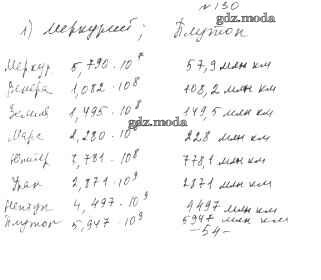 № 130
gdz.moda
1) Меркурий; Плутон
Меркур 5,790 · 10⁷ 57,9 млн км
Венера 1,082 · 10⁸ 108,2 млн км
Земля 1,495 · 10⁸ 149,5 млн км
gdz.moda
Марс 2,280 · 10 228 млн км
Юпитер 7,781 · 10⁸ 778,1 млн км
Уран 2,871 · 10⁹ 2871 млн км
Нептун 4,497 · 10⁹ 4497 млн км
Плутон 5,947 · 10⁹ 5947 млн км
-54-